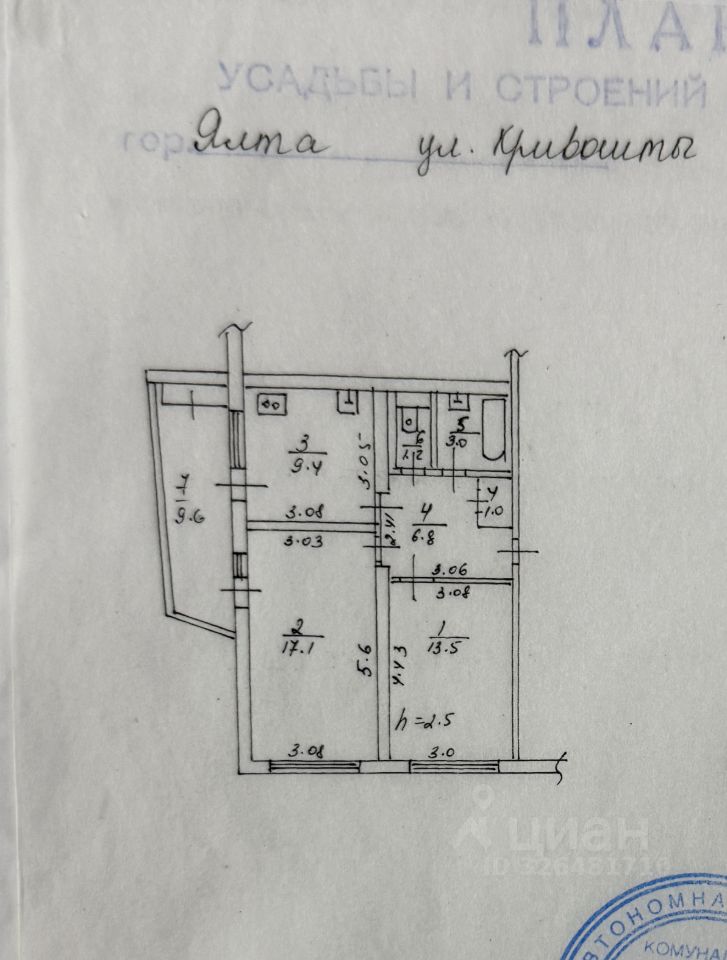 ПЛАН
УСАДЬБЫ И СТРОЕНИЙ
гор. Ялта ул. Кривошты
3
9.4
3.05
6
1.2
5
3.0
7
9.6
4
1.0
3.08
2.41
4
6.8
3.03
3.06
3.08
2
17.1
1
13.5
5.6
4.43
h=2.5
3.08
3.0
циан
ID 326481716
АВТОНОМНА
КОМУНА